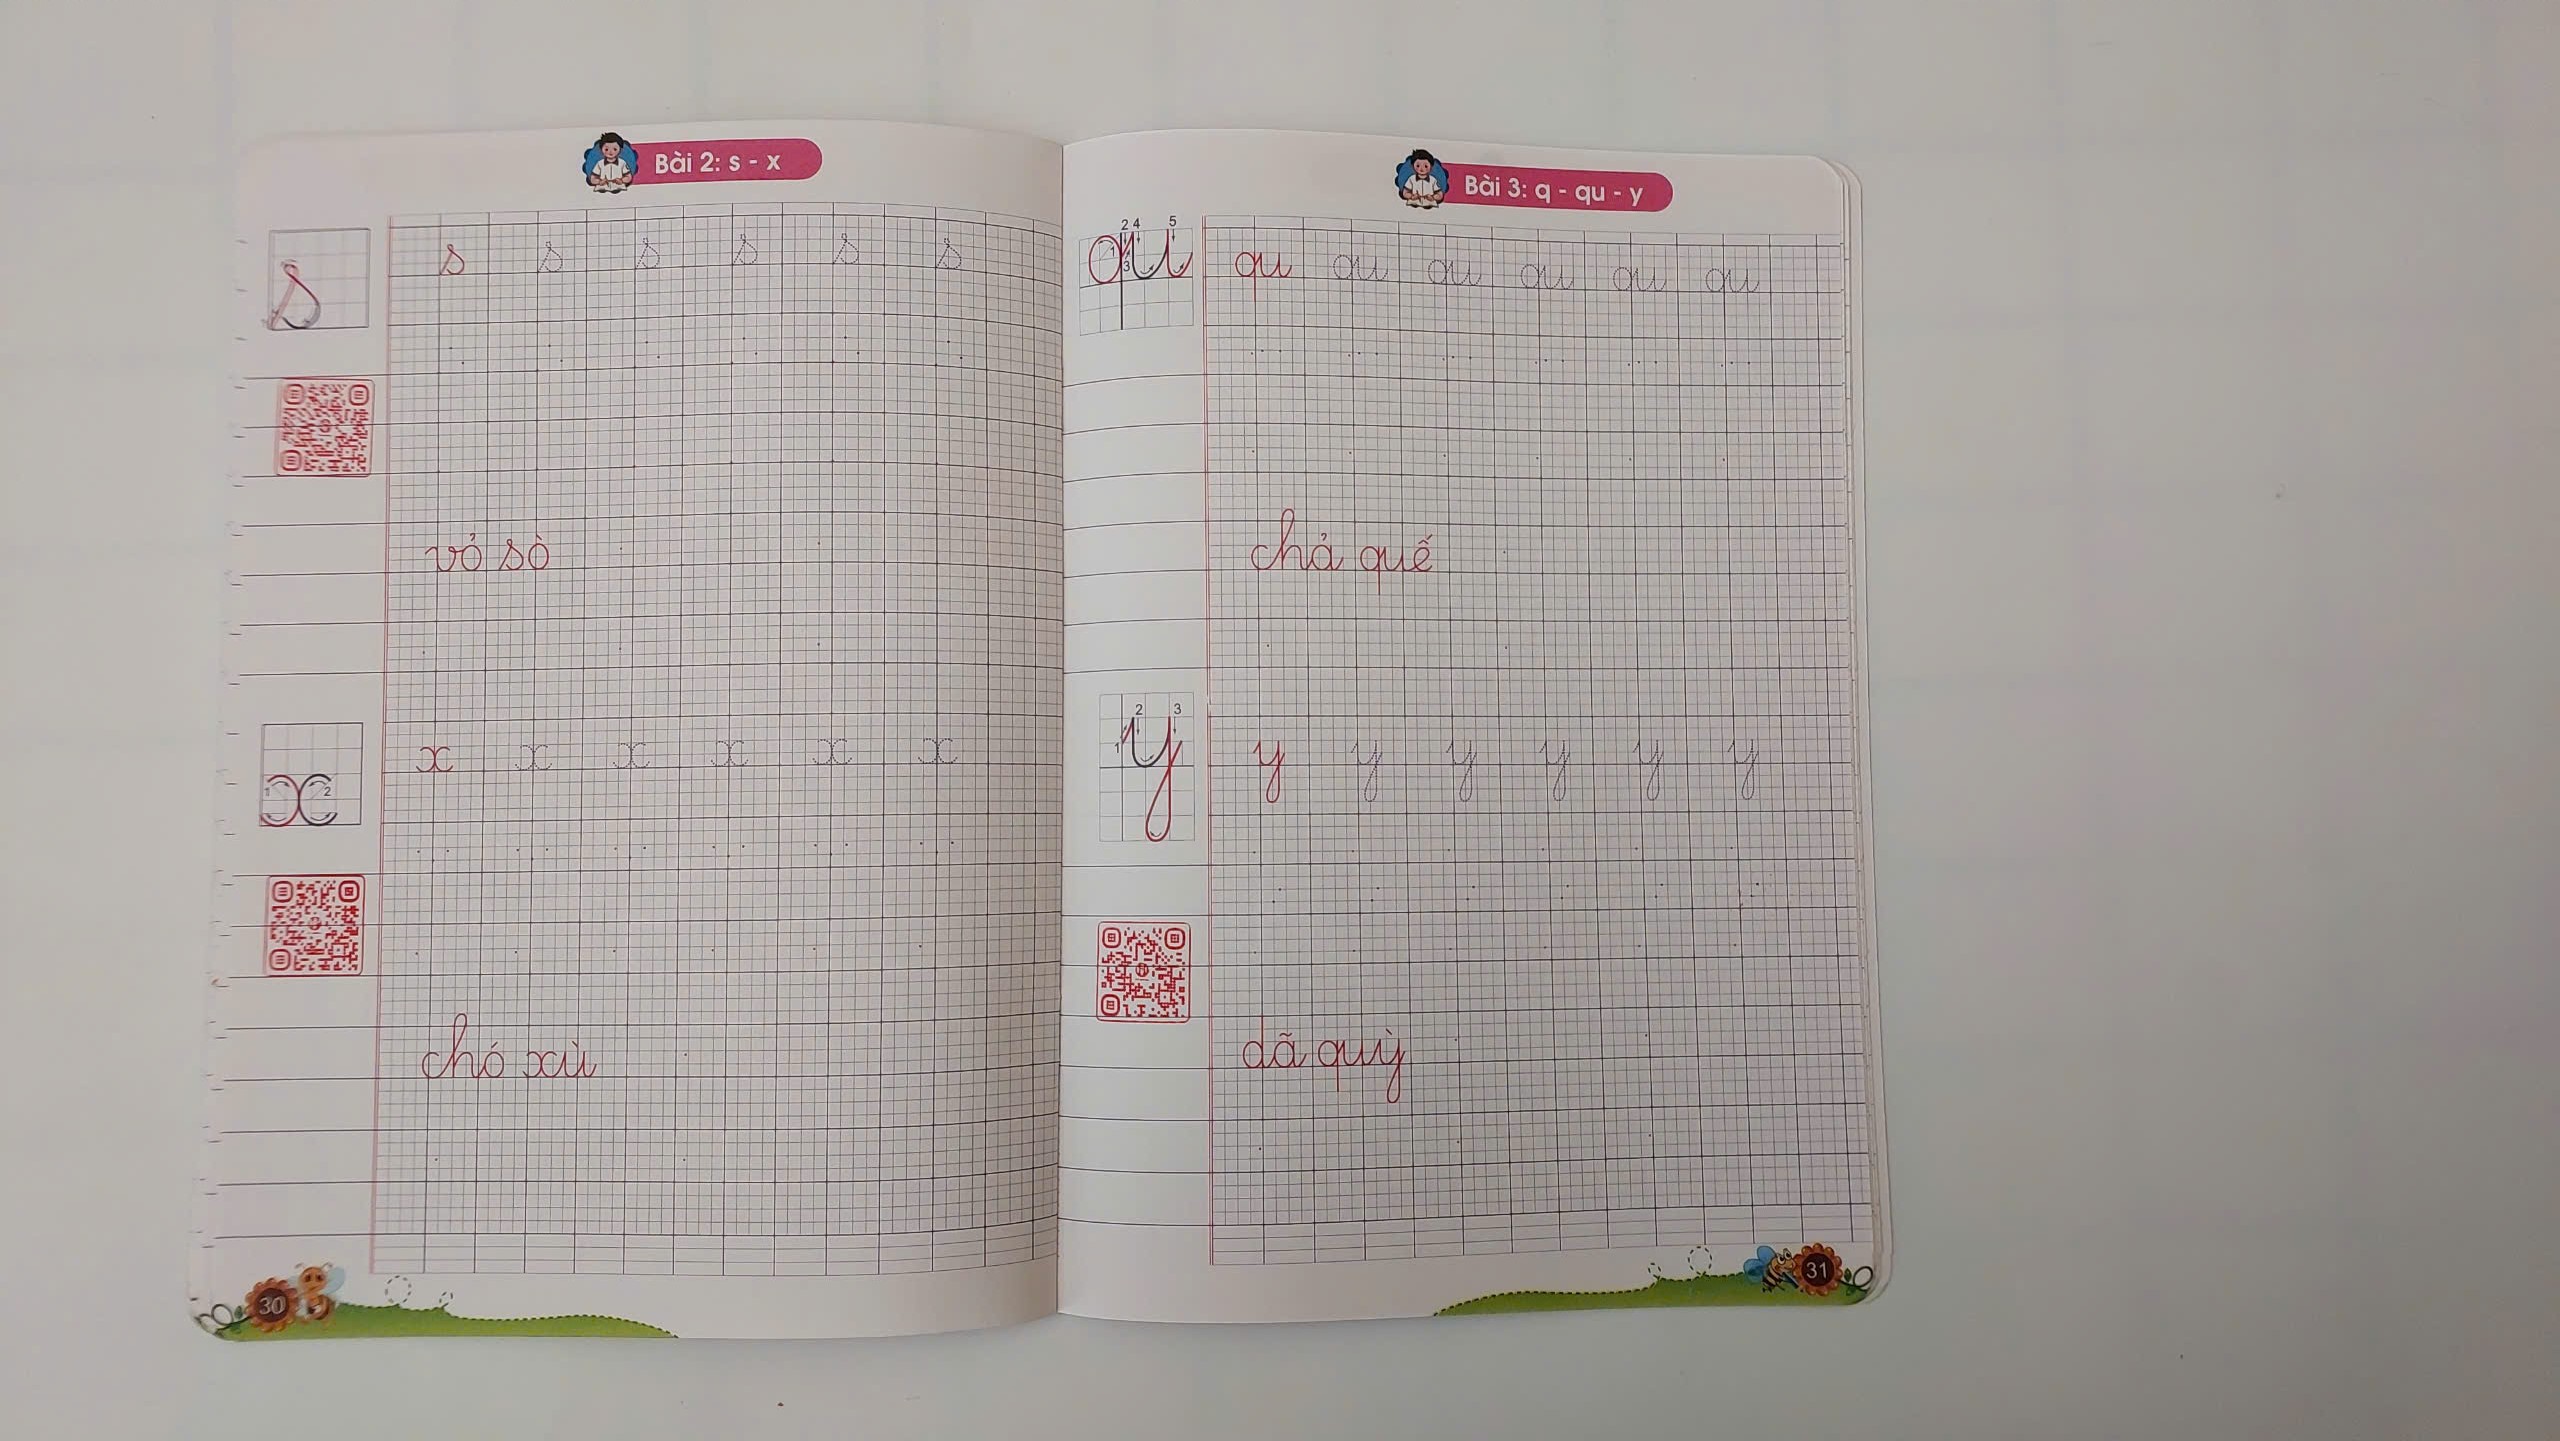 Bài 2: s - x
s
s s s s s s
vỏ sò
1 2
x
x x x x x x
chó xù
30
Bài 3: q - qu - y
2 4 5
1 3
qu
qu qu qu qu qu qu
chả quế
2 3
1
y
y y y y y y
dã quỳ
31